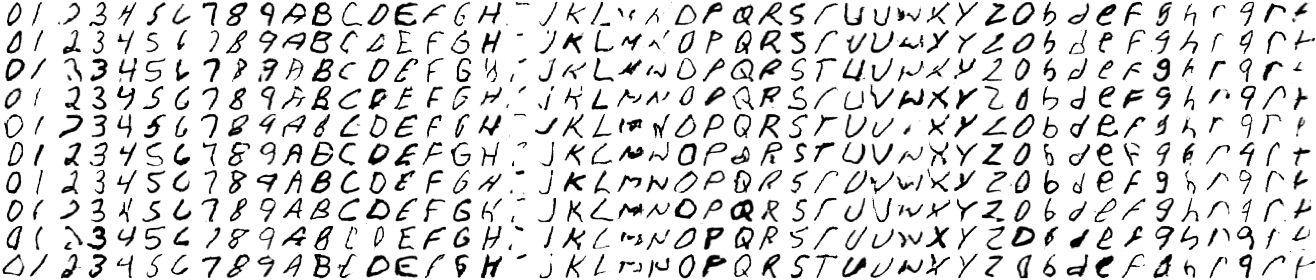 0 1 2 3 4 5 6 7 8 9 A B C D E F G H J K L M N O P Q R S T U V W X Y Z O b d e F g h r q r t
0 1 2 3 4 5 6 7 8 9 A B C D E F G H J K L M N O P Q R S T U V W X Y Z O b d e F g h r q r t
0 1 2 3 4 5 6 7 8 9 A B C D E F G H J K L M N O P Q R S T U V W X Y Z O b d e F g h r q r t
0 1 2 3 4 5 6 7 8 9 A B C D E F G H J K L M N O P Q R S T U V W X Y Z O b d e F g h r q r t
0 1 2 3 4 5 6 7 8 9 A B C D E F G H J K L M N O P Q R S T U V W X Y Z O b d e F g h r q r t
0 1 2 3 4 5 6 7 8 9 A B C D E F G H J K L M N O P Q R S T U V W X Y Z O b d e F g h r q r t
0 1 2 3 4 5 6 7 8 9 A B C D E F G H J K L M N O P Q R S T U V W X Y Z O b d e F g h r q r t
0 1 2 3 4 5 6 7 8 9 A B C D E F G H J K L M N O P Q R S T U V W X Y Z O b d e F g h r q r t
0 1 2 3 4 5 6 7 8 9 A B C D E F G H J K L M N O P Q R S T U V W X Y Z O b d e F g h r q r t
0 1 2 3 4 5 6 7 8 9 A B C D E F G H J K L M N O P Q R S T U V W X Y Z O b d e F g h r q r t